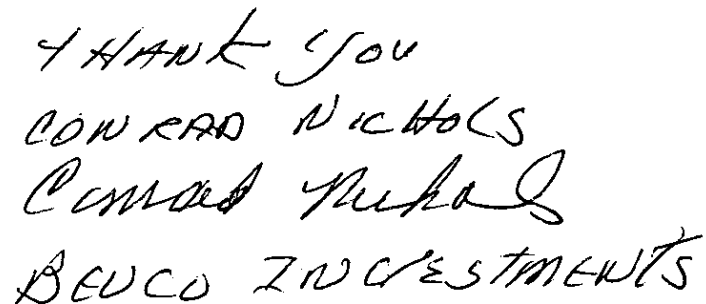 THANK YOU
CONRAD NICHOLS
Conrad Nichols
BEVCO INVESTMENTS